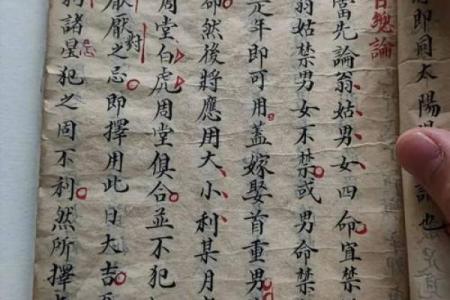 即同太陽
日總論
當先論翁姑男女四命宜禁
翁姑禁男女不禁或男命禁
定年即可用蓋嫁娶首重男
却然後將應用大小利某月
周堂白虎周堂俱合並不犯
厭厭之忌即擇用此日大吉
諸星犯之同不利然所擇
忌
對